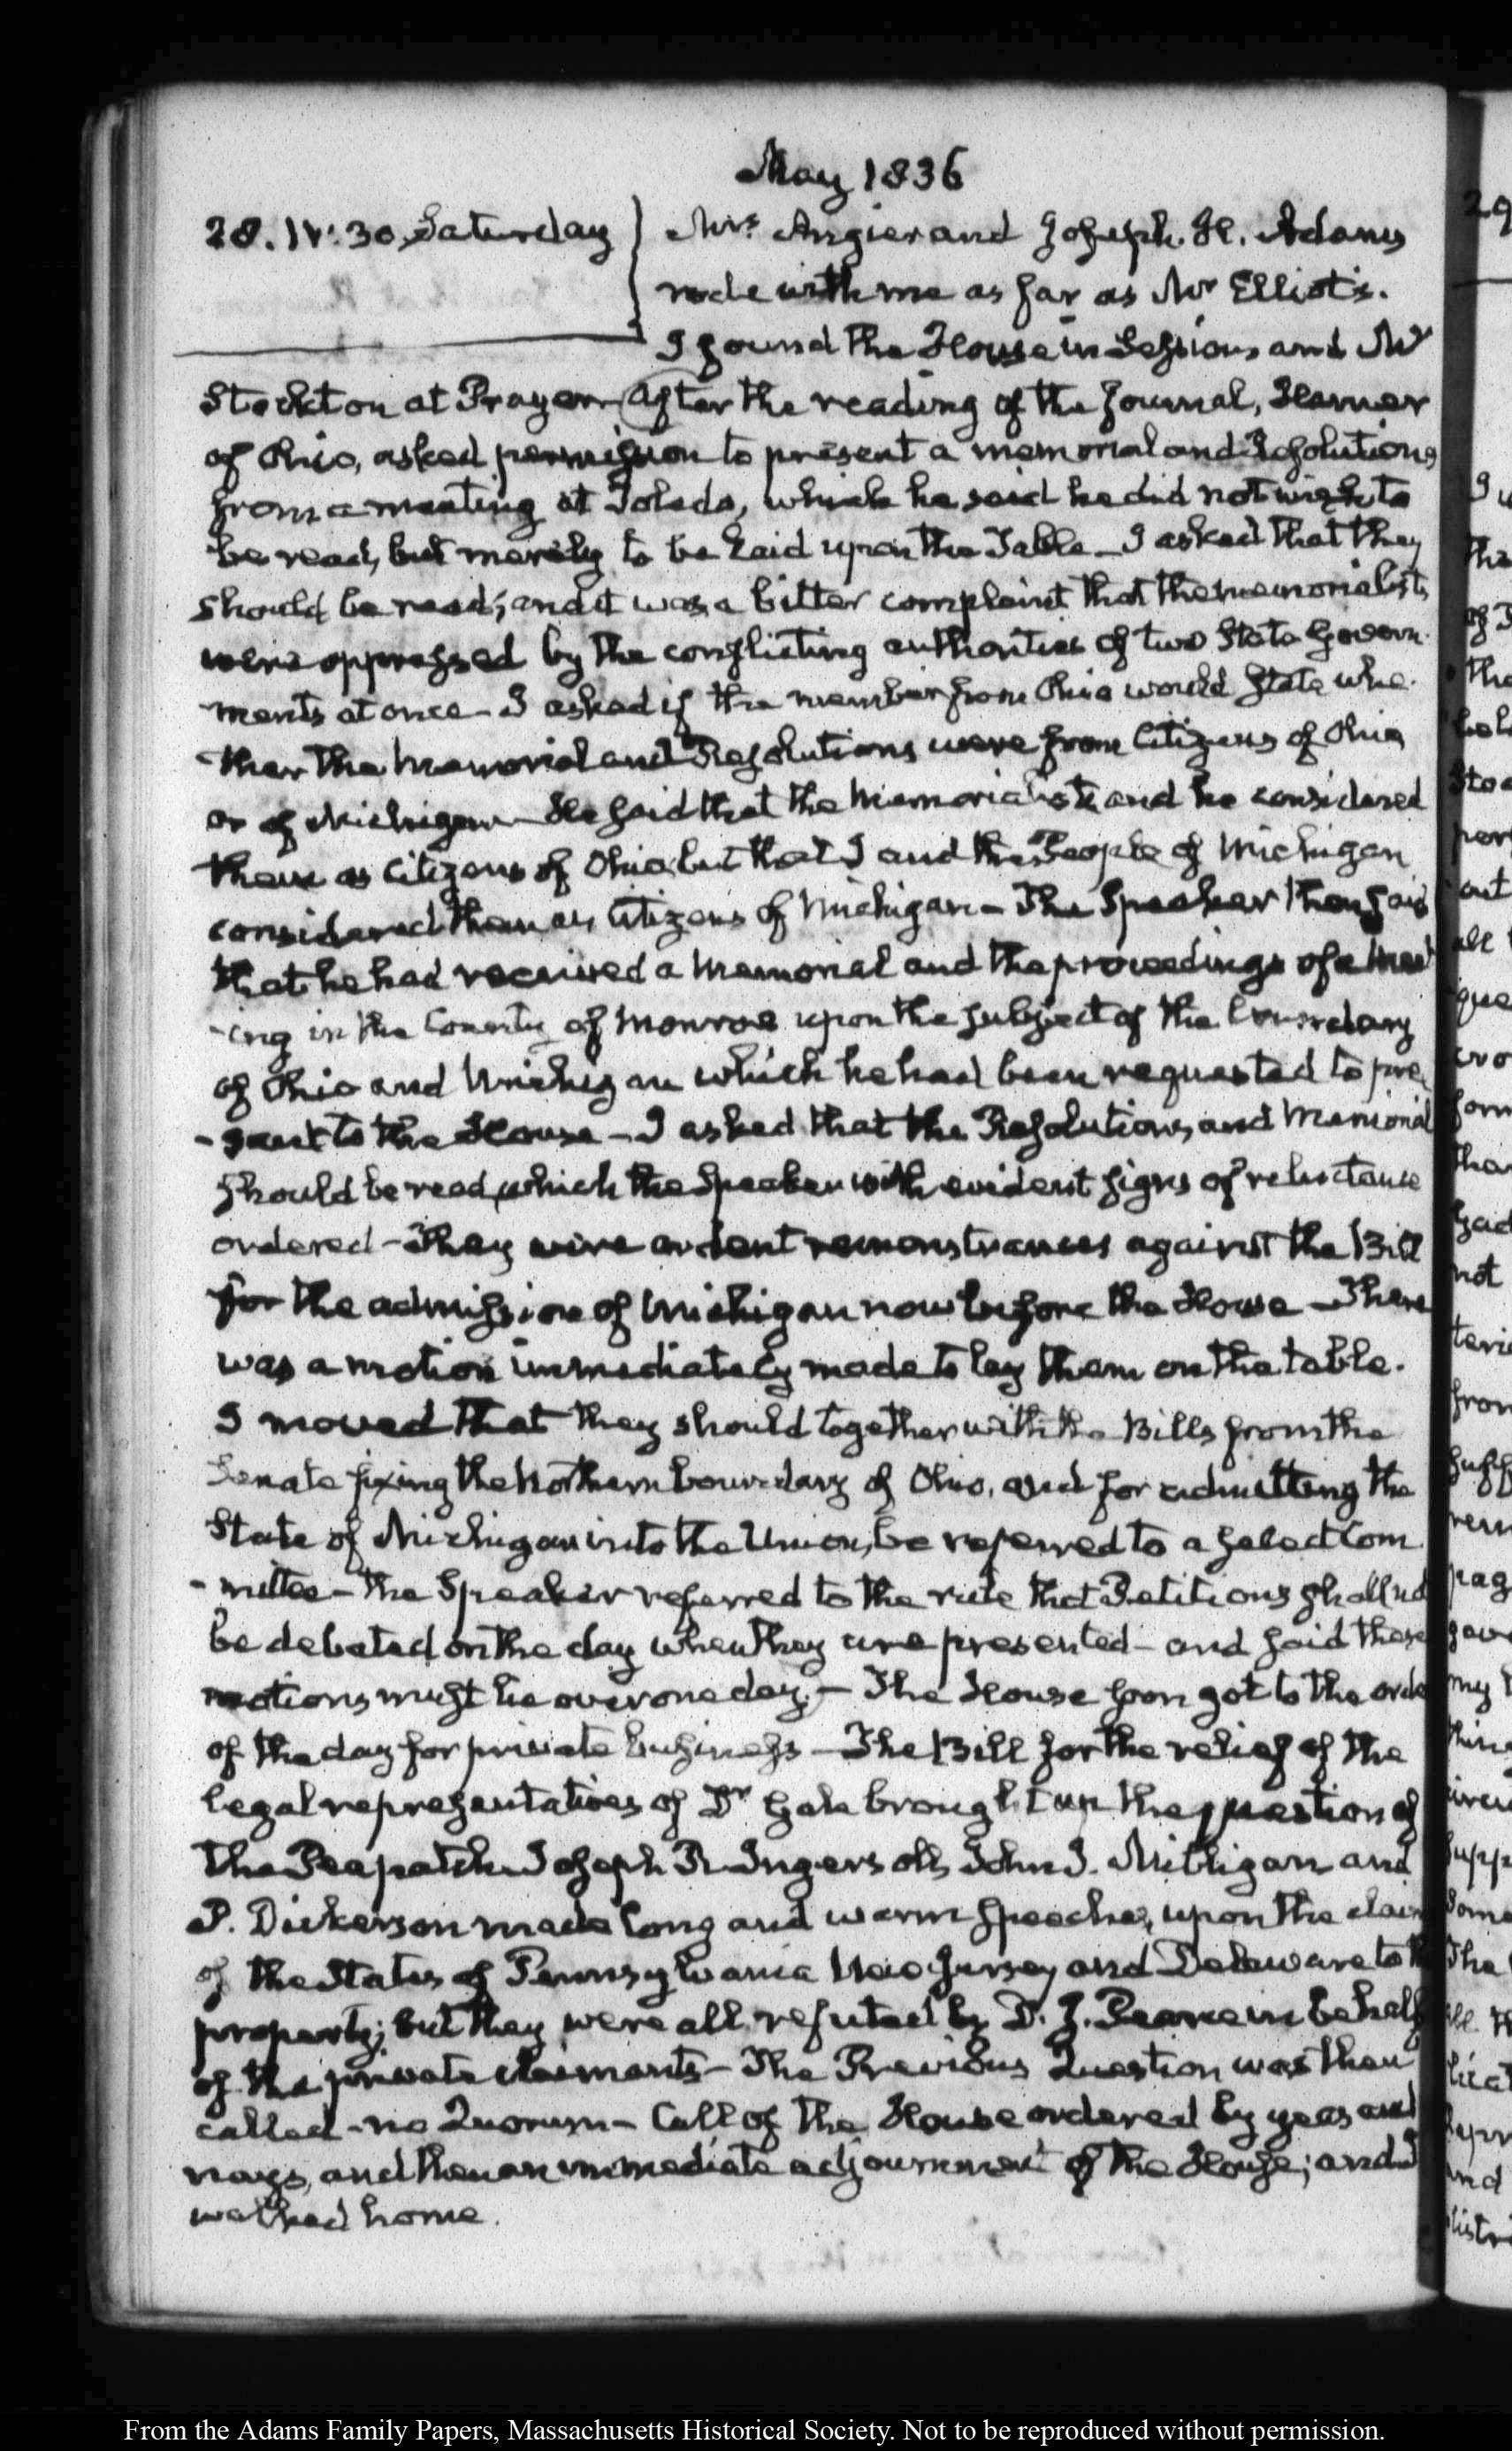 May 1836
28. IV:30. Saturday
Mrs. Angier and Joseph H. Adams
rode with me as far as Mr Elliot's.
I found the House in Session, and Mr
Stockton at Prayer. After the reading of the Journal, Hamer
of Ohio, asked permission to present a memorial and Resolutions
from a meeting at Toledo, which he said he did not wish to
be read, but merely to be laid upon the Table — I asked that they
should be read; and it was a bitter complaint that the memorialists
were oppressed by the conflicting authorities of two State Govern-
ments at once — I asked if the member from Ohio would state whe-
-ther the Memorial and Resolutions were from Citizens of Ohio
or of Michigan — He said that the Memorialists and he considered
them as Citizens of Ohio, but that I and the People of Michigan
considered them as Citizens of Michigan — The Speaker then said
that he had received a Memorial and the proceedings of a Meet
-ing in the County of Monroe upon the subject of the boundary
of Ohio and Michigan which he had been requested to pre
-sent to the House — I asked that the Resolutions, and Memorial
should be read, which the Speaker with evident signs of reluctance
ordered — They were ardent remonstrances against the Bill
for the admission of Michigan now before the House — There
was a motion immediately made to lay them on the table.
I moved that they should together with the Bills from the
Senate fixing the Northern boundary of Ohio, and for admitting the
State of Michigan into the Union, be referred to a select Com
-mittee — the Speaker referred to the rule that Petitions shall not
be debated on the day when they are presented — and said these
motions must lie over one day. — The House soon got to the orders
of the day for private business — The Bill for the relief of the
legal representatives of Dr Gale brought up the question of
the Peapatch. Joseph R. Ingersoll, John J. Milligan and
P. Dickerson made long and warm speeches, upon the claim
of the States of Pennsylvania New Jersey and Delaware to the
property; but they were all refuted by D. J. Pearce in behalf
of the private claimants — The Previous Question was then
called — no Quorum — Call of the House ordered by yeas and
nays, and then an immediate adjournment of the House; and I
walked home.
From the Adams Family Papers, Massachusetts Historical Society. Not to be reproduced without permission.